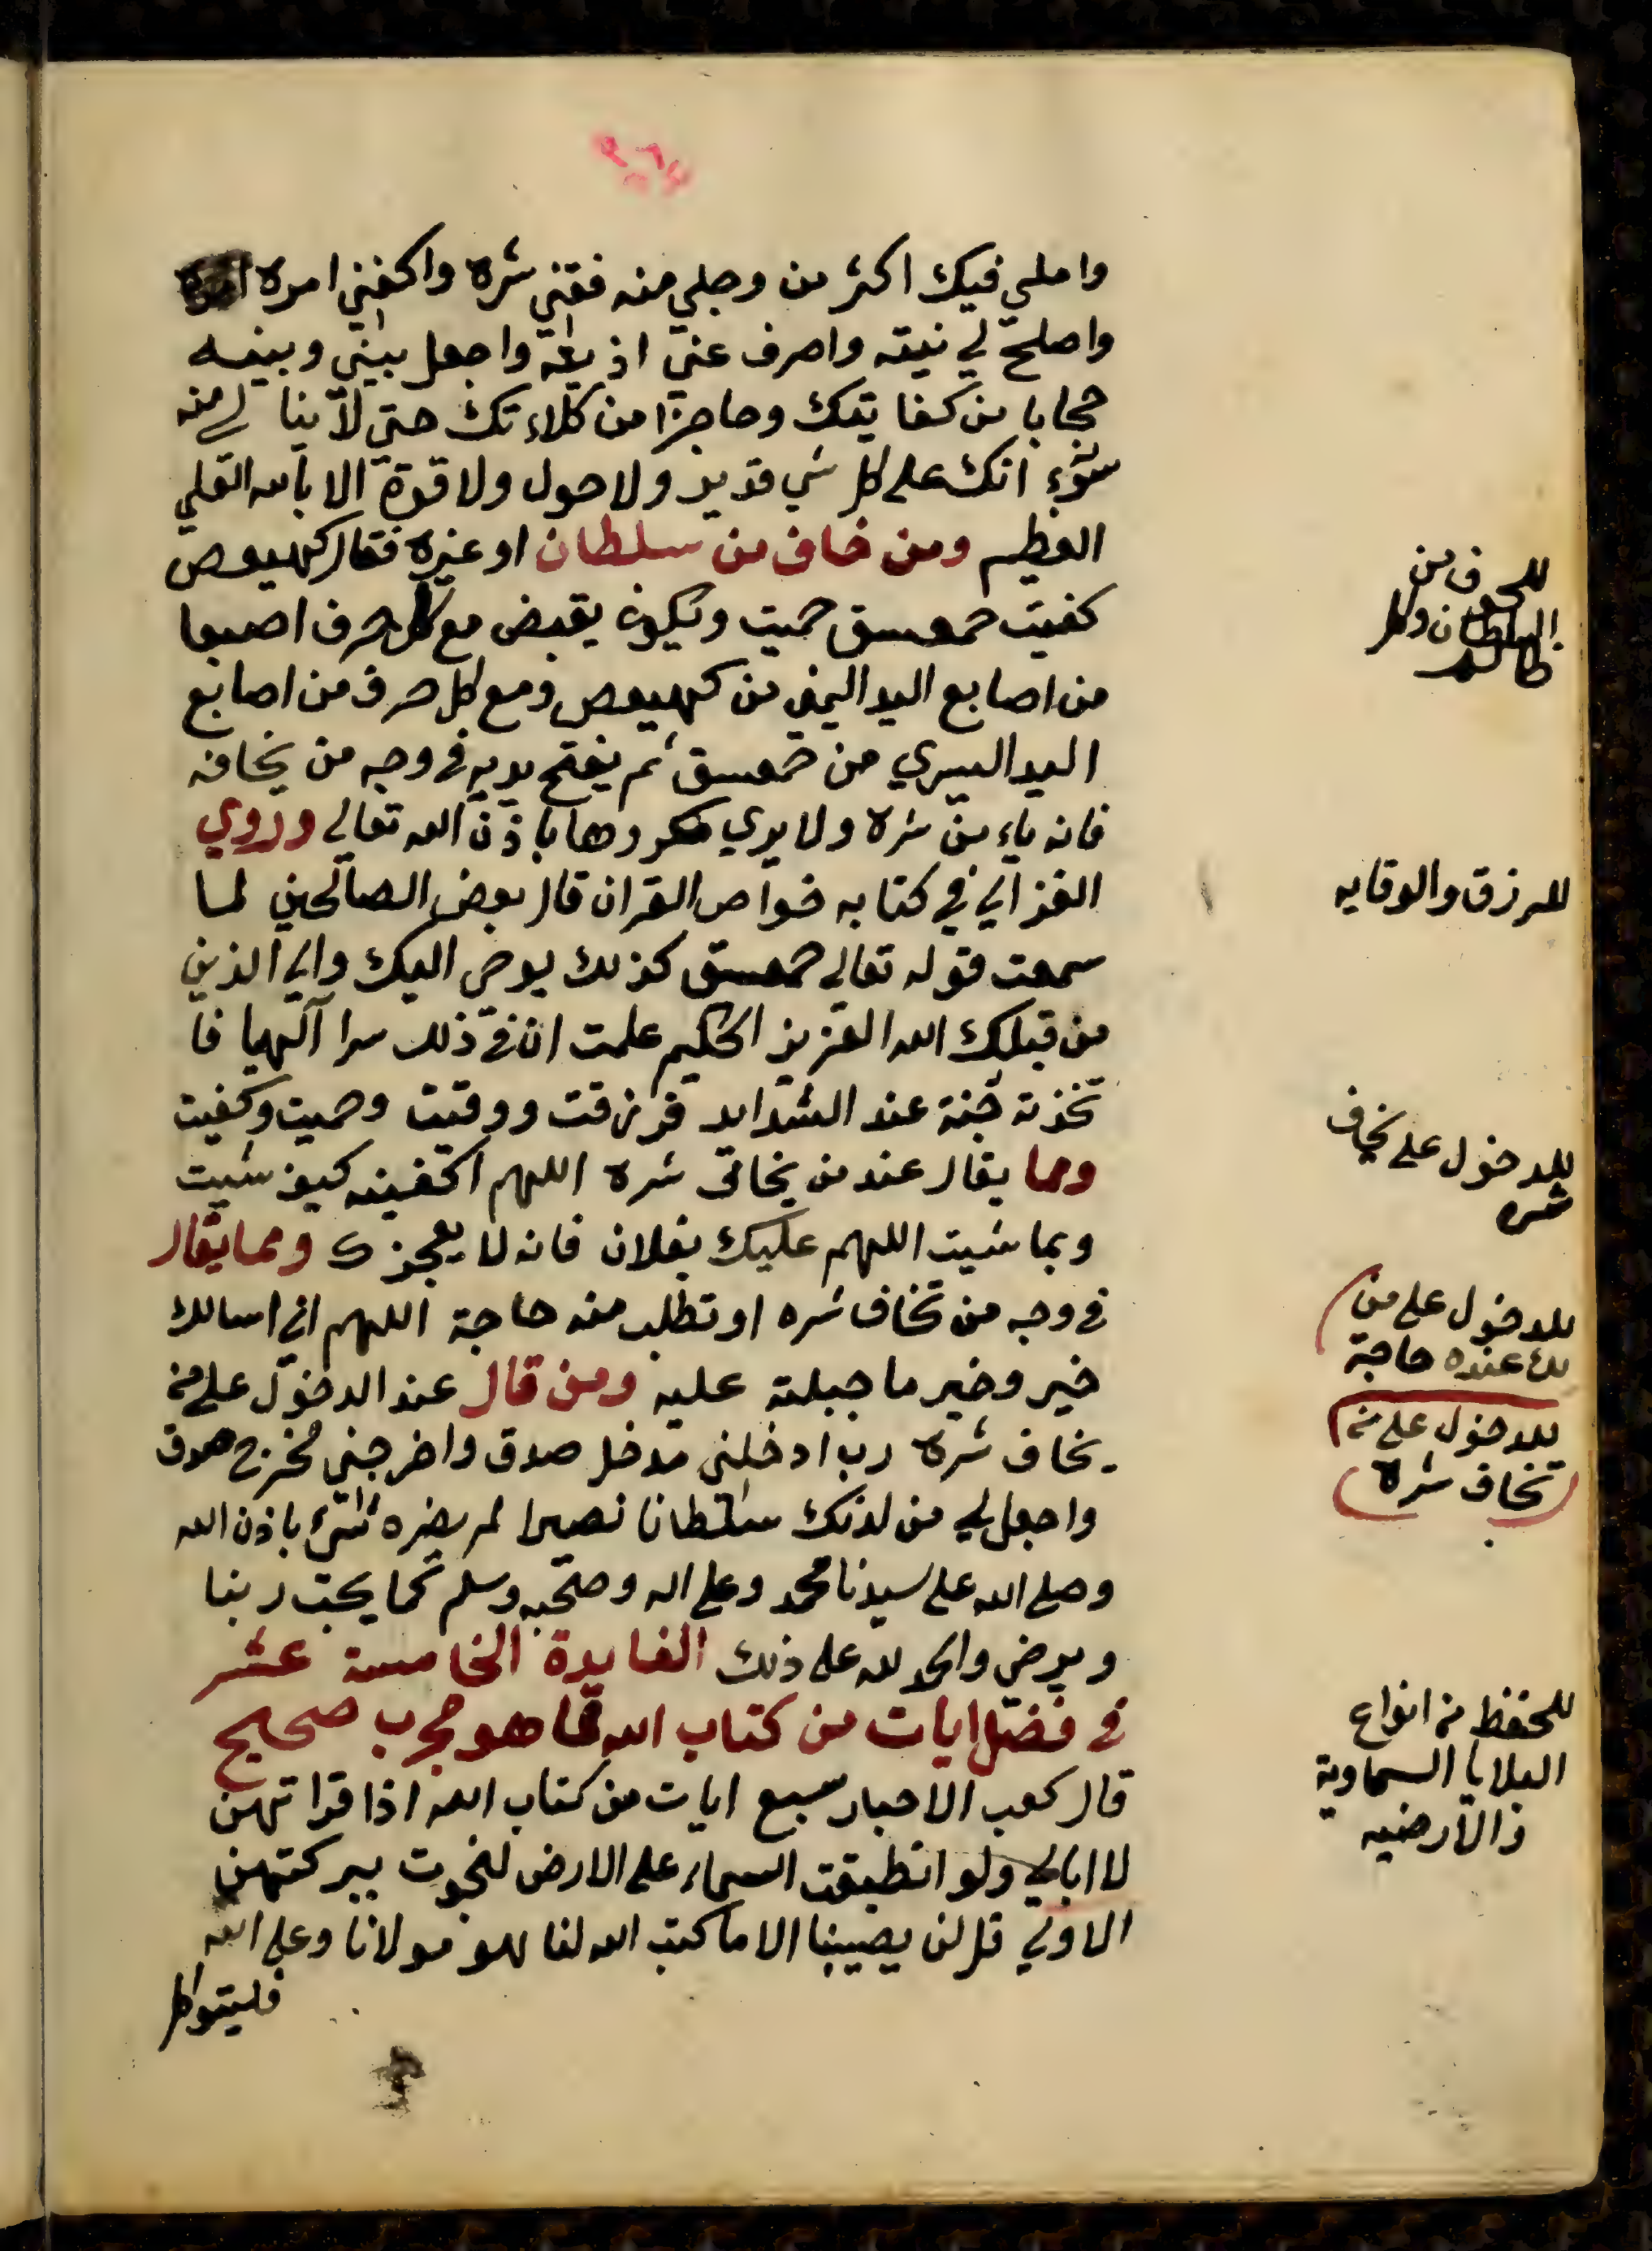 واملي فيك اكثر من وجلي منه فقني شره واكفني امره
واصلح لي نيته واصرف عني اذيته واجعل بيني وبينه
حجابا من كفايتك وحاجزا من كلاءتك حتي لا ينالي منه
سوء انك علي كل شي قدير ولا حول ولا قوة الا بالله العلي
العظيم ومن خاف من سلطان او غيره فقال كهيعص
كفيت حمعسق حميت ويكون يقبض مع كل حرف اصبعا
من اصابع اليد اليمني من كهيعص ومع كل حرف من اصابع
اليد اليسري من حمعسق ثم يفتح يديه في وجه من يخافه
فانه يامن شره ولا يري مكروها باذن الله تعالي وروي
الغزالي في كتابه خواص القران قال بعض الصالحين لما
سمعت قوله تعالي حمعسق كذلك يوحي اليك والي الذين
من قبلك الله العزيز الحكيم علمت ان في ذلك سرا آلهيا فا
تخذته جنة عند الشدايد فرزقت ووقيت وحميت وكفيت
ومما يقال عند من يخاف شره اللهم اكفينه كيف شيت
وبما شيت اللهم عليك بفلان فانه لا يعجزك ومما يقال
في وجه من تخاف شره او تطلب منه حاجة اللهم اني اسالك
خير وخير ما جبلته عليه ومن قال عند الدخول علي من
يخاف شره رب ادخلني مدخل صدق واخرجني مخرج صدق
واجعل لي من لدنك سلطانا نصيرا لم يضره شيء باذن الله
وصلي الله علي سيدنا محمد وعلي اله وصحبه وسلم كما يحب ربنا
ويرضي والحمد لله علي ذلك الفايدة الخامسة عشر
في فضل ايات من كتاب الله مما هو مجرب صحيح
قال كعب الاحبار سبع ايات من كتاب الله اذا قراتهن
لا ابالي ولو انطبقت السماء علي الارض لنجوت ببركتهن
الاولي قل لن يصيبنا الا ما كتب الله لنا هو مولانا وعلي الله
فليتوكل
للخوف من
السلطان وكل
ظالم
للرزق والوقايه
للدخول علي يخاف
شره
للدخول علي من
لك عنده حاجة
للدخول علي من
تخاف شره
للحفظ من انواع
البلايا السماوية
والارضيه